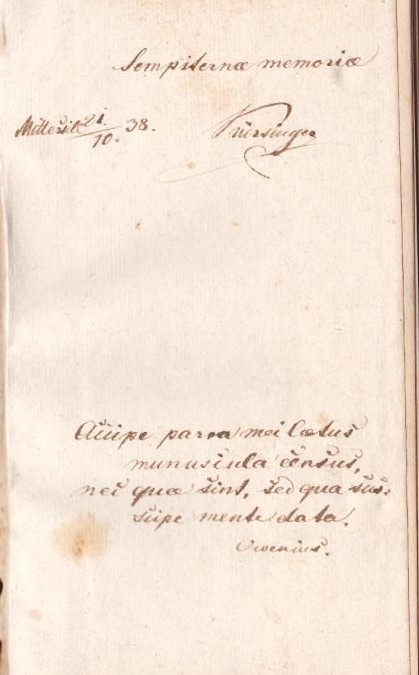 Sempiternæ memoriæ
Mittersill 21./10. 38.
Kürsinger
Accipe parva mei lætus
munuscula census,
nec quæ sint, sed qua sus:
scipe mente data.
Owenius.